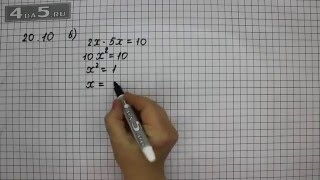 4DA5.RU
20.10 б)
2x · 5x = 10
10x² = 10
x² = 1
x =